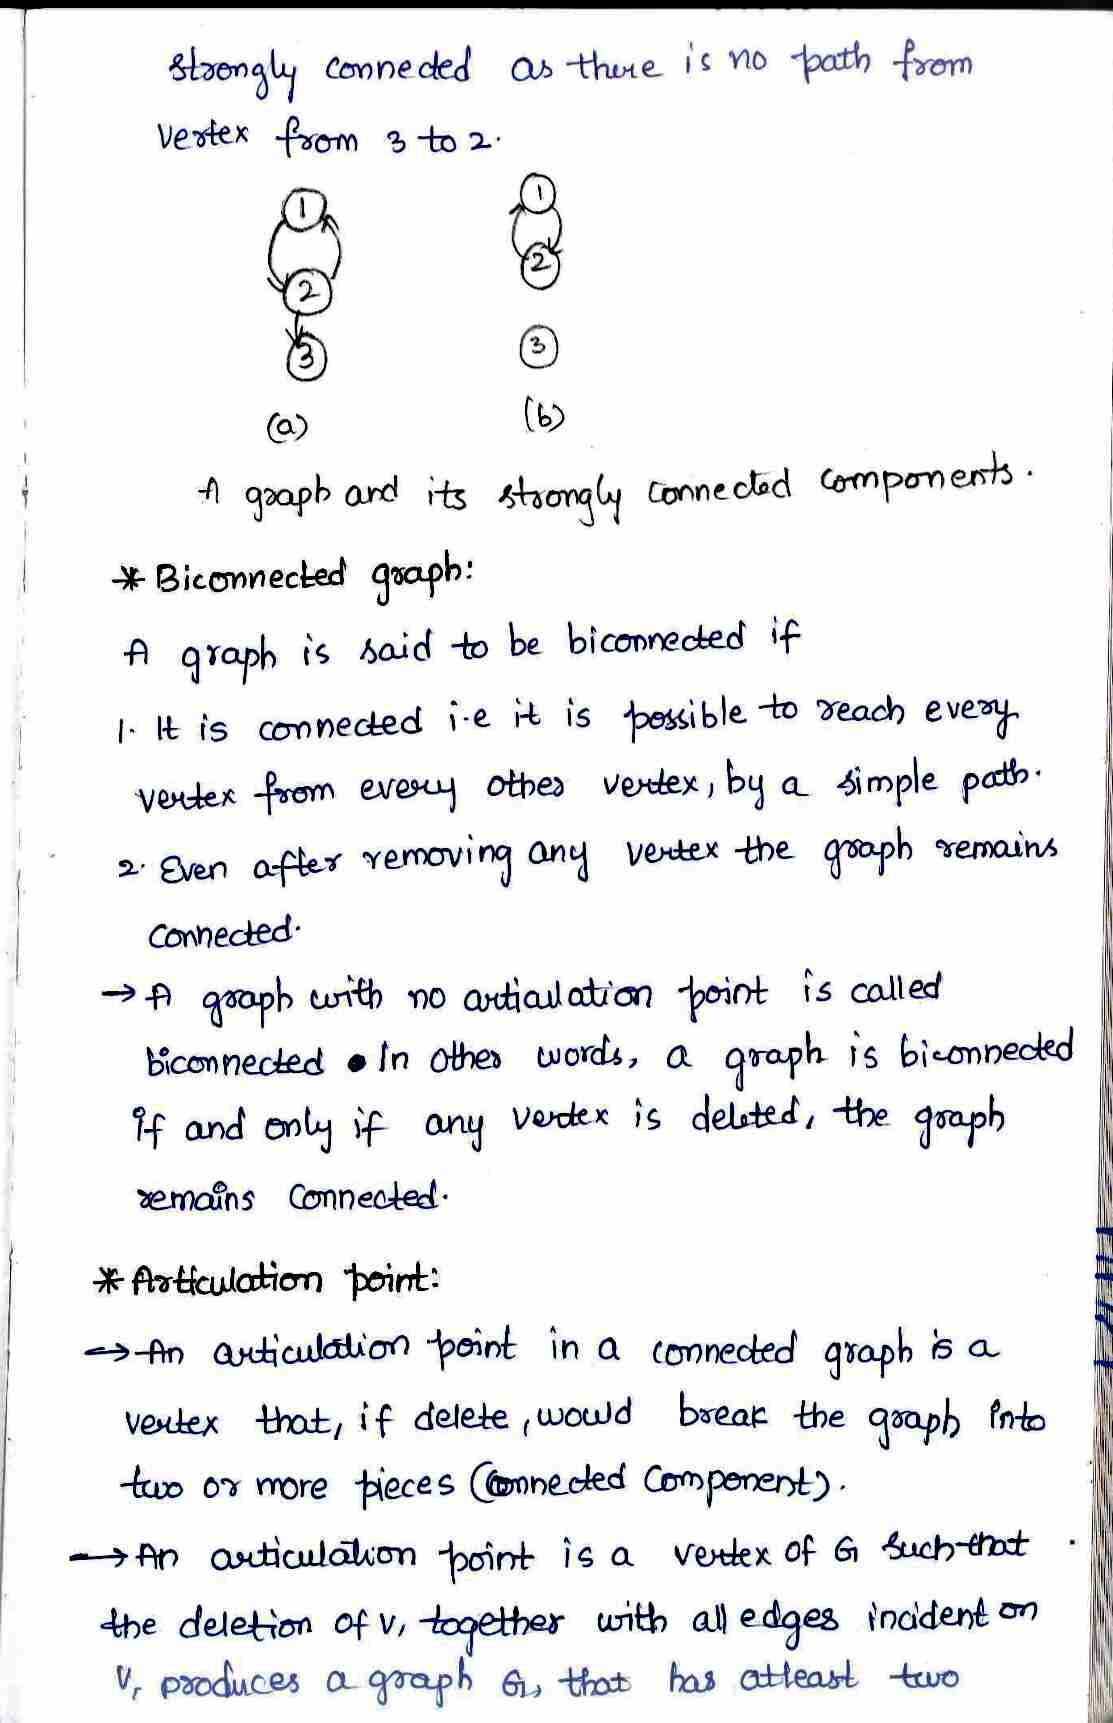 strongly connected as there is no path from
vertex from 3 to 2.
1 1
2 2
3 3
(a) (b)
A graph and its strongly connected components.
* Biconnected graph:
A graph is said to be biconnected if
1. It is connected i.e it is possible to reach every
vertex from every other vertex, by a simple path.
2. Even after removing any vertex the graph remains
connected.
→ A graph with no articulation point is called
biconnected • In other words, a graph is biconnected
if and only if any vertex is deleted, the graph
remains connected.
* Articulation point:
→ An articulation point in a connected graph is a
vertex that, if delete, would break the graph into
two or more pieces (connected component).
→ An articulation point is a vertex of G such that
the deletion of v, together with all edges incident on
v, produces a graph G, that has atleast two